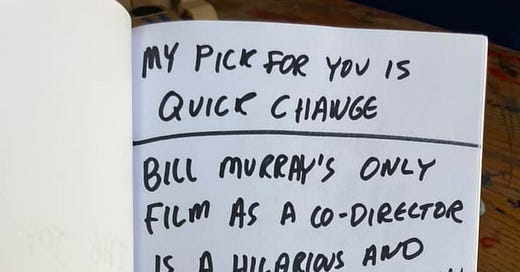 MY PICK FOR YOU IS
QUICK CHANGE
BILL MURRAY'S ONLY
FILM AS A CO-DIRECTOR
IS A HILARIOUS AND